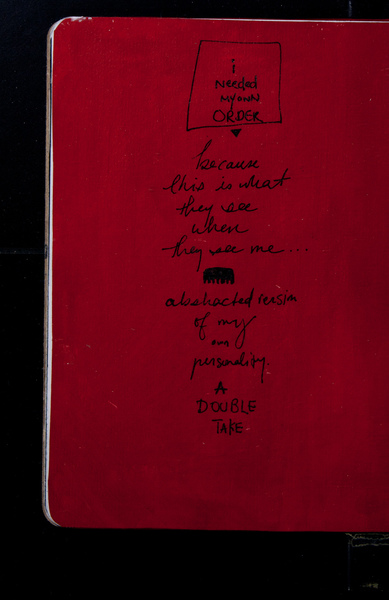 i
Needed
My own
ORDER
because
this is what
they see
when
they see me...
abstracted version
of my
own
personality.
A
DOUBLE
TAKE